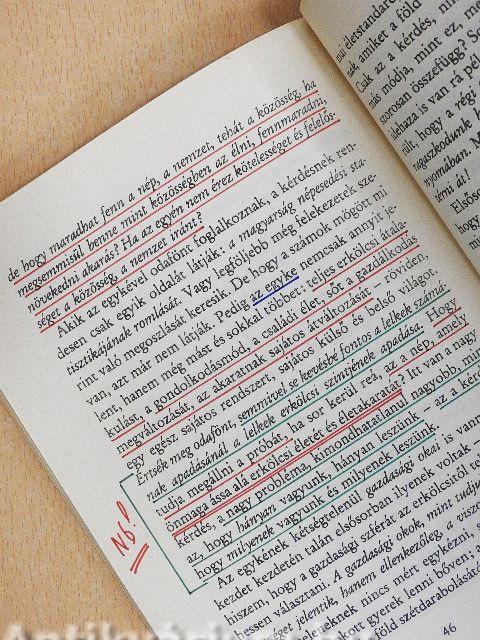 de hogy maradhat fenn a nép, a nemzet, tehát a közösség, ha
megsemmisül benne mint közösségben az élni, fennmaradni,
növekedni akarás? Ha az egyén nem érez kötelességet és felelős-
séget a közösség, a nemzet iránt?
Akik az egykével odafönt foglalkoznak, a kérdésnek ren-
desen csak egyik oldalát látják: a magyarság népesedési sta-
tisztikájának romlását. Vagy legföljebb még felekezetek sze-
rint való megoszlását keresik. De hogy a számok mögött mi
van, azt már nem látják. Pedig az egyke nemcsak annyit je-
lent, hanem még mást és sokkal többet: teljes erkölcsi átala-
kulást, a gondolkodásmód, a családi élet, sőt a gazdálkodás
megváltozását, az akaratnak sajátos átváltozását – röviden,
egy egész sajátos rendszert, sajátos külső és belső világot.
Értsék meg odafönt, semmivel se kevésbé fontos a lelkek számá-
nak apadásánál a lelkek erkölcsi szintjének apadása. Hogy
tudja megállni a próbát, ha sor kerül reá, az a nép, amely
önmaga ássa alá erkölcsi életét és életakaratát? Itt van a nagy
kérdés, a nagy probléma, kimondhatatlanul nagyobb, mint
az, hogy hányan vagyunk, hányan leszünk – az a kérdés,
hogy milyenek vagyunk és milyenek leszünk.
Az egykének kétségtelenül gazdasági okai is vannak,
kezdet kezdetén talán elsősorban ilyenek voltak
hiszem, hogy a gazdasági szférát az erkölcsitől
hessen választani. A gazdasági okok, mint tudjuk,
séget jelentik, hanem ellenkezőleg, a
nincs mért egykézni,
gyerek lenni bőven;
föld szétdarabolását
46
N6!
életstandard
amiket a föld
Csak az a kérdés,
más módja, mint ez,
szorosan összefügg?
is van rá
hogy a régi
ragaszkodunk
nyomában.
írni át!
Elsős
hogy
Antikvárium.hu